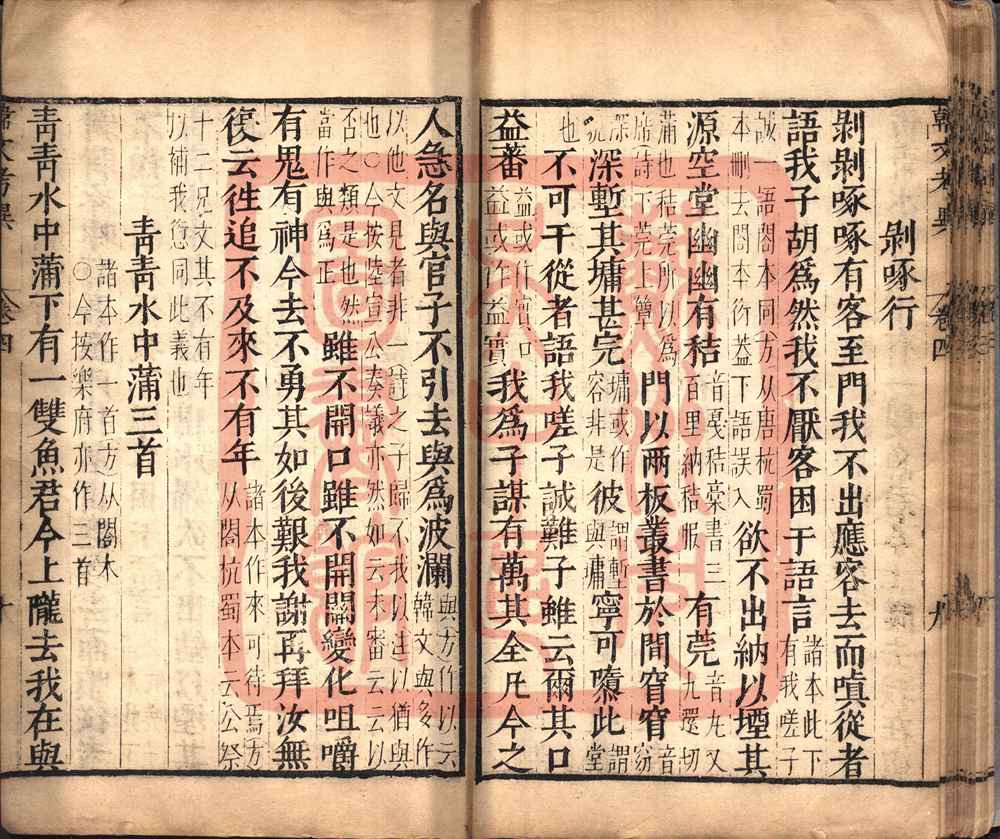 韓文考異 卷四 九
剝啄行
剝剝啄啄有客至門我不出應客去而嗔從者
語我子胡爲然我不厭客困于語言諸本此下有我嗟子
誠一語閣本同方从唐杭蜀本刪去閣本衍蓋下語誤入欲不出納以堙其
源空堂幽幽有秸音戛秸藁書三百里納秸服有莞音丸又九還切
蒲也秸莞所以爲席詩下莞上簟門以兩板叢書於間窅窅音窈
深塹其墉甚完墉或作容非是彼謂塹與墉寧可隳此謂堂
也不可干從者語我嗟子誠難子雖云爾其口
益蕃益或作實口益或作益實我爲子謀有萬其全凡今之
人急名與官子不引去與爲波瀾與方作以云韓文與多作
以他文見者非一詩之子歸不我以注以猶與也○今按陸宣公奏議亦然如云未審云云以
否之類是也然當作與爲正雖不開口雖不開關變化咀嚼
有鬼有神今去不勇其如後艱我謝再拜汝無
復云往追不及來不有年諸本作來可待焉方从閣杭蜀本云公祭
十二兄文其不有年以補我愆同此義也
青青水中蒲三首
諸本作一首方从閣本○今按樂府亦作三首
青青水中蒲下有一雙魚君今上隴去我在與
韓文考異 卷四 十